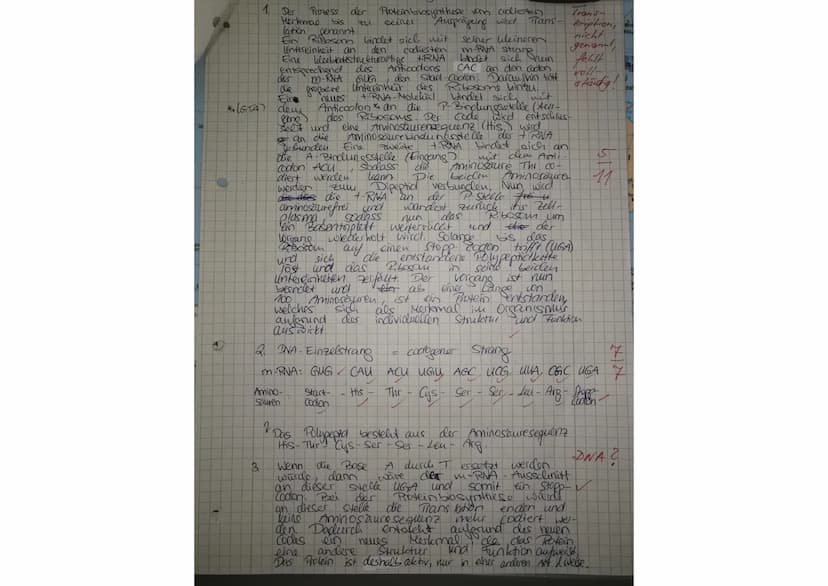 1. Der Prozess der Proteinbiosynthese vom codierten
Merkmal bis zu seiner Ausprägung wird Trans-
lation genannt.
Trans-
kription
nicht
genannt,
fehlt
voll-
ständig!
Ein Ribosom bindet sich mit seiner kleineren
Untereinheit an den codierten m-RNA Strang.
Eine kleeblattstrukturartige t-RNA bindet sich nun
entsprechend des Anticodons CAC an den Codon
der m-RNA GUG, den Start-Codon. Daraufhin tritt
die größere Untereinheit des Ribosoms hinzu.
Ein neues t-RNA-Molekül bindet sich mit
*(GUA)
dem Anticodon* an die P-Bindungsstelle (Aus-
gang) des Ribosoms. Der Code wird entschlüs-
selt und eine Aminosäurensequenz (His) wird
an die Aminosäurebindungsstelle der t-RNA
gebunden. Eine zweite t-RNA bindet sich an
die A-Bindungsstelle (Eingang) mit dem Anti-
codon ACU, sodass die Aminosäure Thr co-
diert werden kann. Die beiden Aminosäuren
werden zum Dipeptid verbunden. Nun wird
5
11
die t-RNA an der P-Stelle
aminosäurefrei und wandert zurück ins Zell-
plasma, sodass nun das Ribosom um
ein Basentriplett weiterrückt und der
Vorgang wiederholt wird. Solange bis das
Ribosom auf einen Stopp-Codon trifft (UGA)
und sich die entstandene Polypeptidkette
löst und das Ribosom in seine beiden
Untereinheiten zerfällt. Der Vorgang ist nun
beendet und ab einer Länge von
100 Aminosäuren, ist ein Protein entstanden,
welches sich als Merkmal im Organismus
aufgrund der individuellen Struktur und Funktion
auswirkt.
2. DNA-Einzelstrang = codogener Strang
7
7
m-RNA: GUG CAU ACU UGU AGC UCG UUA CGC UGA
Amino- Start- - His - Thr - Cys - Ser - Ser - Leu - Arg - Stopp-
säuren codon codon
Das Polypeptid besteht aus der Aminosäuresequenz
His - Thr - Cys - Ser - Ser - Leu - Arg.
DNA?
3. Wenn die Base A durch T ersetzt werden
würde, dann wäre der m-RNA-Ausschnitt
an dieser Stelle UGA und somit ein Stopp-
codon. Bei der Proteinbiosynthese würde
an dieser Stelle die Translation enden und
keine Aminosäuresequenz mehr codiert wer-
den. Dadurch entsteht aufgrund des neuen
Codes ein neues Merkmal, da das Protein
eine andere Struktur und Funktion aufweist.
Das Protein ist deshalb aktiv, nur in einer anderen Art & Weise.